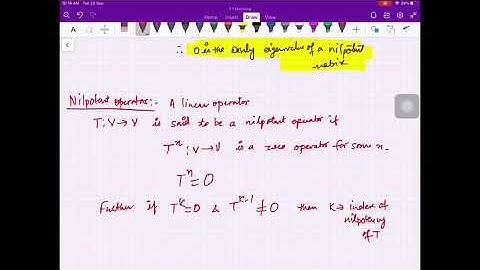 10:14 AM Tue 23 Mar
Home Insert Draw View
∴ 0 is the only eigenvalue of a nilpotent
matrix
Nilpotent operator:- A linear operator
T: V→V is said to be a nilpotent operator if
Tⁿ: V→V is a zero operator for some n.
Tⁿ=0
Further if Tᴷ=0 & Tᴷ⁻¹≠0 then K→ index of
nilpotency
of T